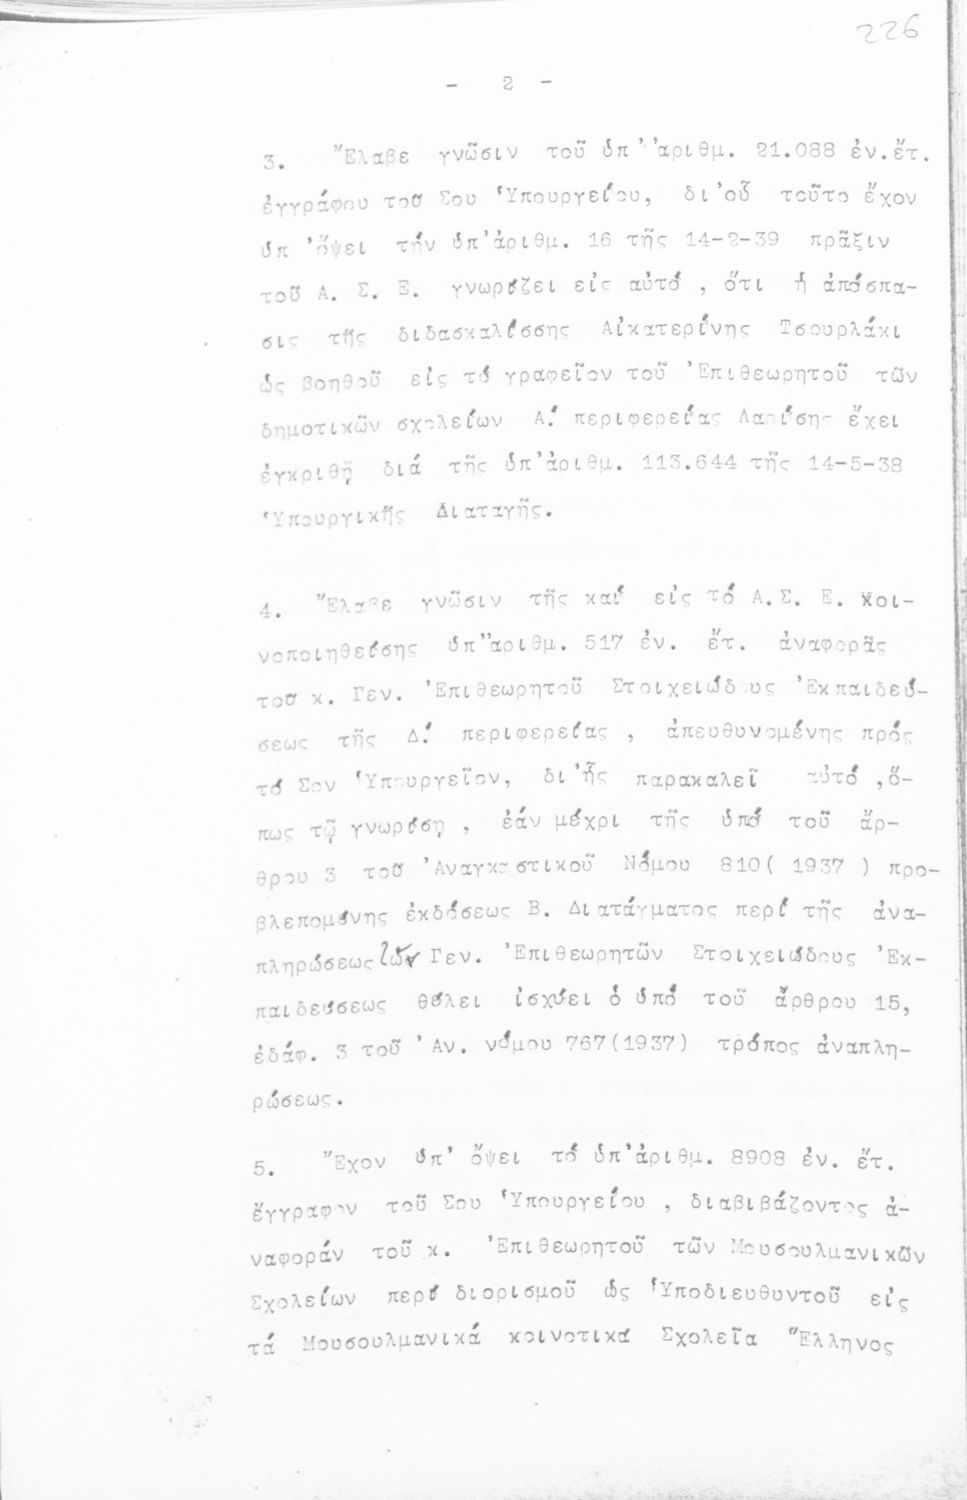 226
- 2 -
3. Ἔλαβε γνῶσιν τοῦ ὑπ' ἀριθμ. 21.088 ἐν.ἔτ.
ἐγγράφου τοῦ Σου Ὑπουργείου, δι'οὗ τοῦτο ἔχον
ὑπ 'ὄψει τήν ὑπ'ἀριθμ. 16 τῆς 14-2-39 πρᾶξιν
τοῦ Α. Σ. Ε. γνωρίζει εἰς αὐτό , ὅτι ἡ ἀπόσπα-
σις τῆς διδασκαλίσσης Αἰκατερίνης Τσουρλάκι
ὡς βοηθοῦ εἰς τό γραφεῖον τοῦ Ἐπιθεωρητοῦ τῶν
δημοτικῶν σχολείων Α! περιφερείας Λαρίσης ἔχει
ἐγκριθῆ διά τῆς ὑπ'ἀριθμ. 113.644 τῆς 14-5-38
Ὑπουργικῆς Διαταγῆς.
4. Ἔλαβε γνῶσιν τῆς καί εἰς τό Α.Σ. Ε. κοι-
νοποιηθείσης ὑπ"αριθμ. 517 ἐν. ἔτ. ἀναφορᾶς
τοῦ κ. Γεν. Ἐπιθεωρητοῦ Στοιχειώδους Ἐκπαιδεύ-
σεως τῆς Δ! περιφερείας , ἀπευθυνομένης πρός
τό Σον Ὑπουργεῖον, δι'ἧς παρακαλεῖ αὐτό ,ὅ-
πως τῷ γνωρίση , ἐάν μέχρι τῆς ὑπό τοῦ ἄρ-
θρου 3 τοῦ Ἀναγκαστικοῦ Νόμου 810( 1937 ) προ-
βλεπομένης ἐκδόσεως Β. Διατάγματος περί τῆς ἀνα-
πληρώσεως τῶν Γεν. Ἐπιθεωρητῶν Στοιχειώδους Ἐκ-
παιδεύσεως θέλει ἰσχύει ὁ ὑπό τοῦ ἄρθρου 15,
ἐδάφ. 3 τοῦ Ἀν. νόμου 767(1937) τρόπος ἀναπλη-
ρώσεως.
5. Ἔχον ὑπ' ὄψει τό ὑπ'ἀριθμ. 8908 ἐν. ἔτ.
ἔγγραφον τοῦ Σου Ὑπουργείου , διαβιβάζοντος ἀ-
ναφοράν τοῦ κ. Ἐπιθεωρητοῦ τῶν Μουσουλμανικῶν
Σχολείων περί διορισμοῦ ὡς Ὑποδιευθυντοῦ εἰς
τά Μουσουλμανικά κοινοτικά Σχολεῖα Ἕλληνος